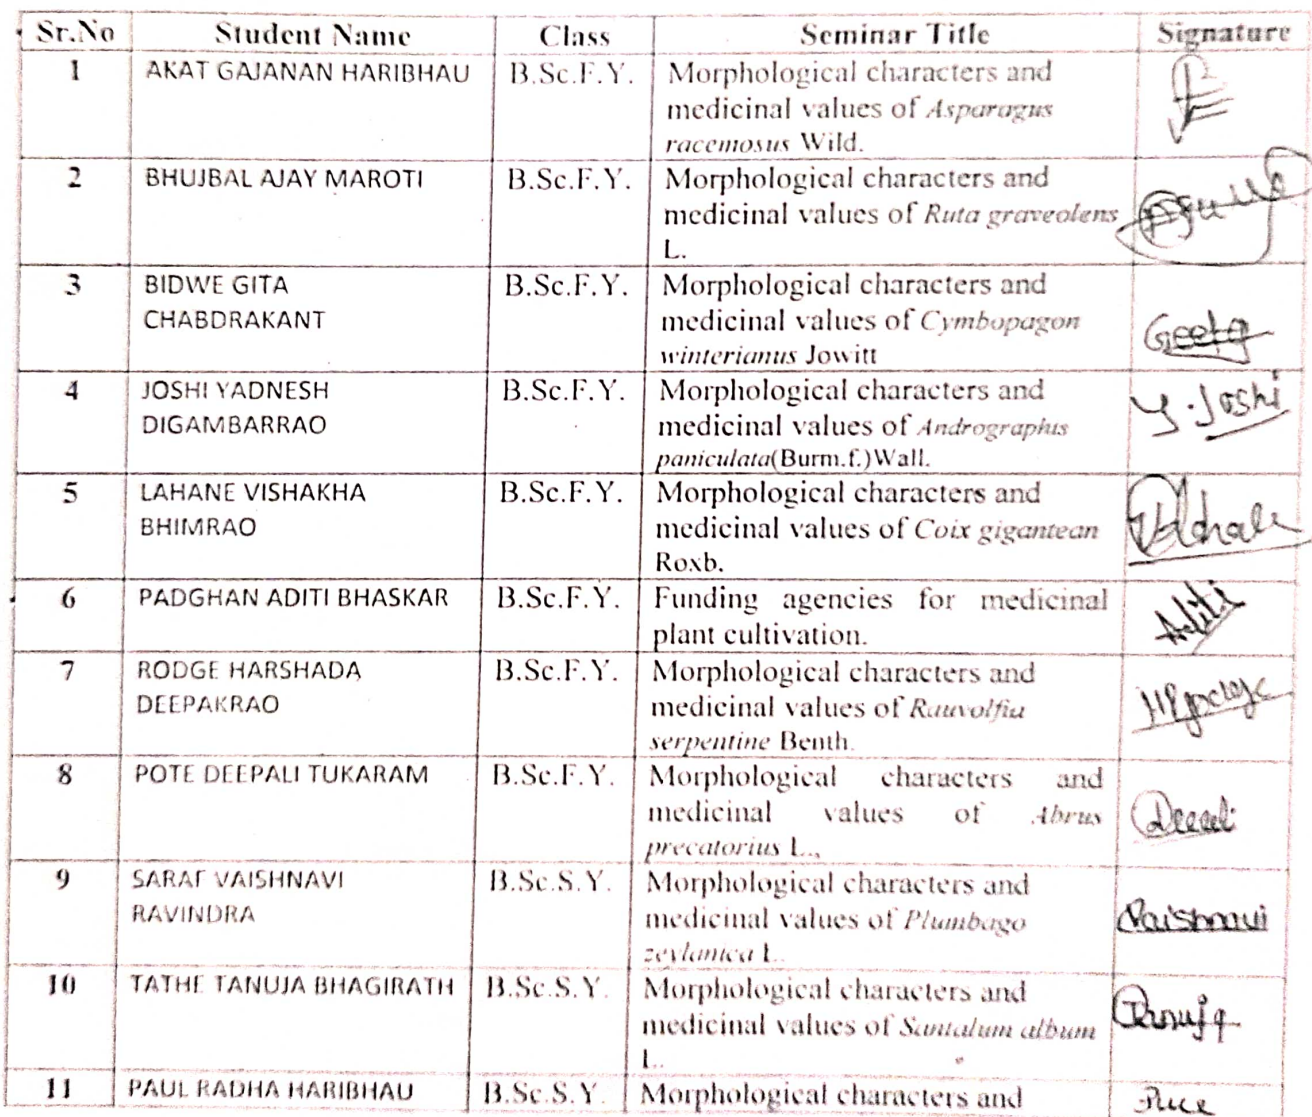 Sr.No Student Name Class Seminar Title Signature
1 AKAT GAJANAN HARIBHAU B.Sc.F.Y. Morphological characters and
medicinal values of Asparagus
racemosus Wild.
2 BHUJBAL AJAY MAROTI B.Sc.F.Y. Morphological characters and
medicinal values of Ruta graveolens
L.
3 BIDWE GITA B.Sc.F.Y. Morphological characters and
CHABDRAKANT medicinal values of Cymbopagon
winterianus Jowitt Geeta
4 JOSHI YADNESH B.Sc.F.Y. Morphological characters and
DIGAMBARRAO medicinal values of Andrographis Y.Joshi
paniculata(Burm.f.)Wall.
5 LAHANE VISHAKHA B.Sc.F.Y. Morphological characters and
BHIMRAO medicinal values of Coix gigantean
Roxb.
6 PADGHAN ADITI BHASKAR B.Sc.F.Y. Funding agencies for medicinal Aditi
plant cultivation.
7 RODGE HARSHADA B.Sc.F.Y. Morphological characters and
DEEPAKRAO medicinal values of Rauvolfia
serpentine Benth.
8 POTE DEEPALI TUKARAM B.Sc.F.Y. Morphological characters and
medicinal values of Abrus
precatorius L.,
9 SARAF VAISHNAVI B.Sc.S.Y. Morphological characters and
RAVINDRA medicinal values of Plumbago Vaishnavi
zeylanica L.
10 TATHE TANUJA BHAGIRATH B.Sc.S.Y. Morphological characters and
medicinal values of Santalum album Tanuja
L.
11 PAUL RADHA HARIBHAU B.Sc.S.Y. Morphological characters and